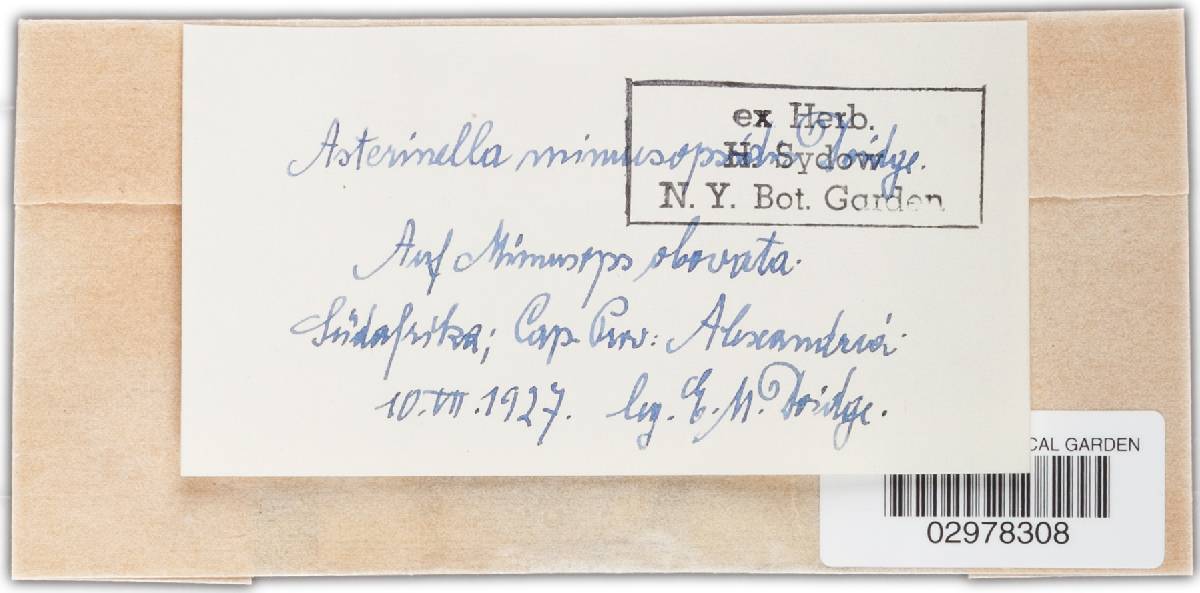 Asterinella mimusopsidis Doidge.
ex Herb.
H. Sydow
N. Y. Bot. Garden
Auf Mimusops obovata.
Südafrika; Cap Prov: Alexandria
10.VII.1927. leg. E. M. Doidge.
CAL GARDEN
02978308